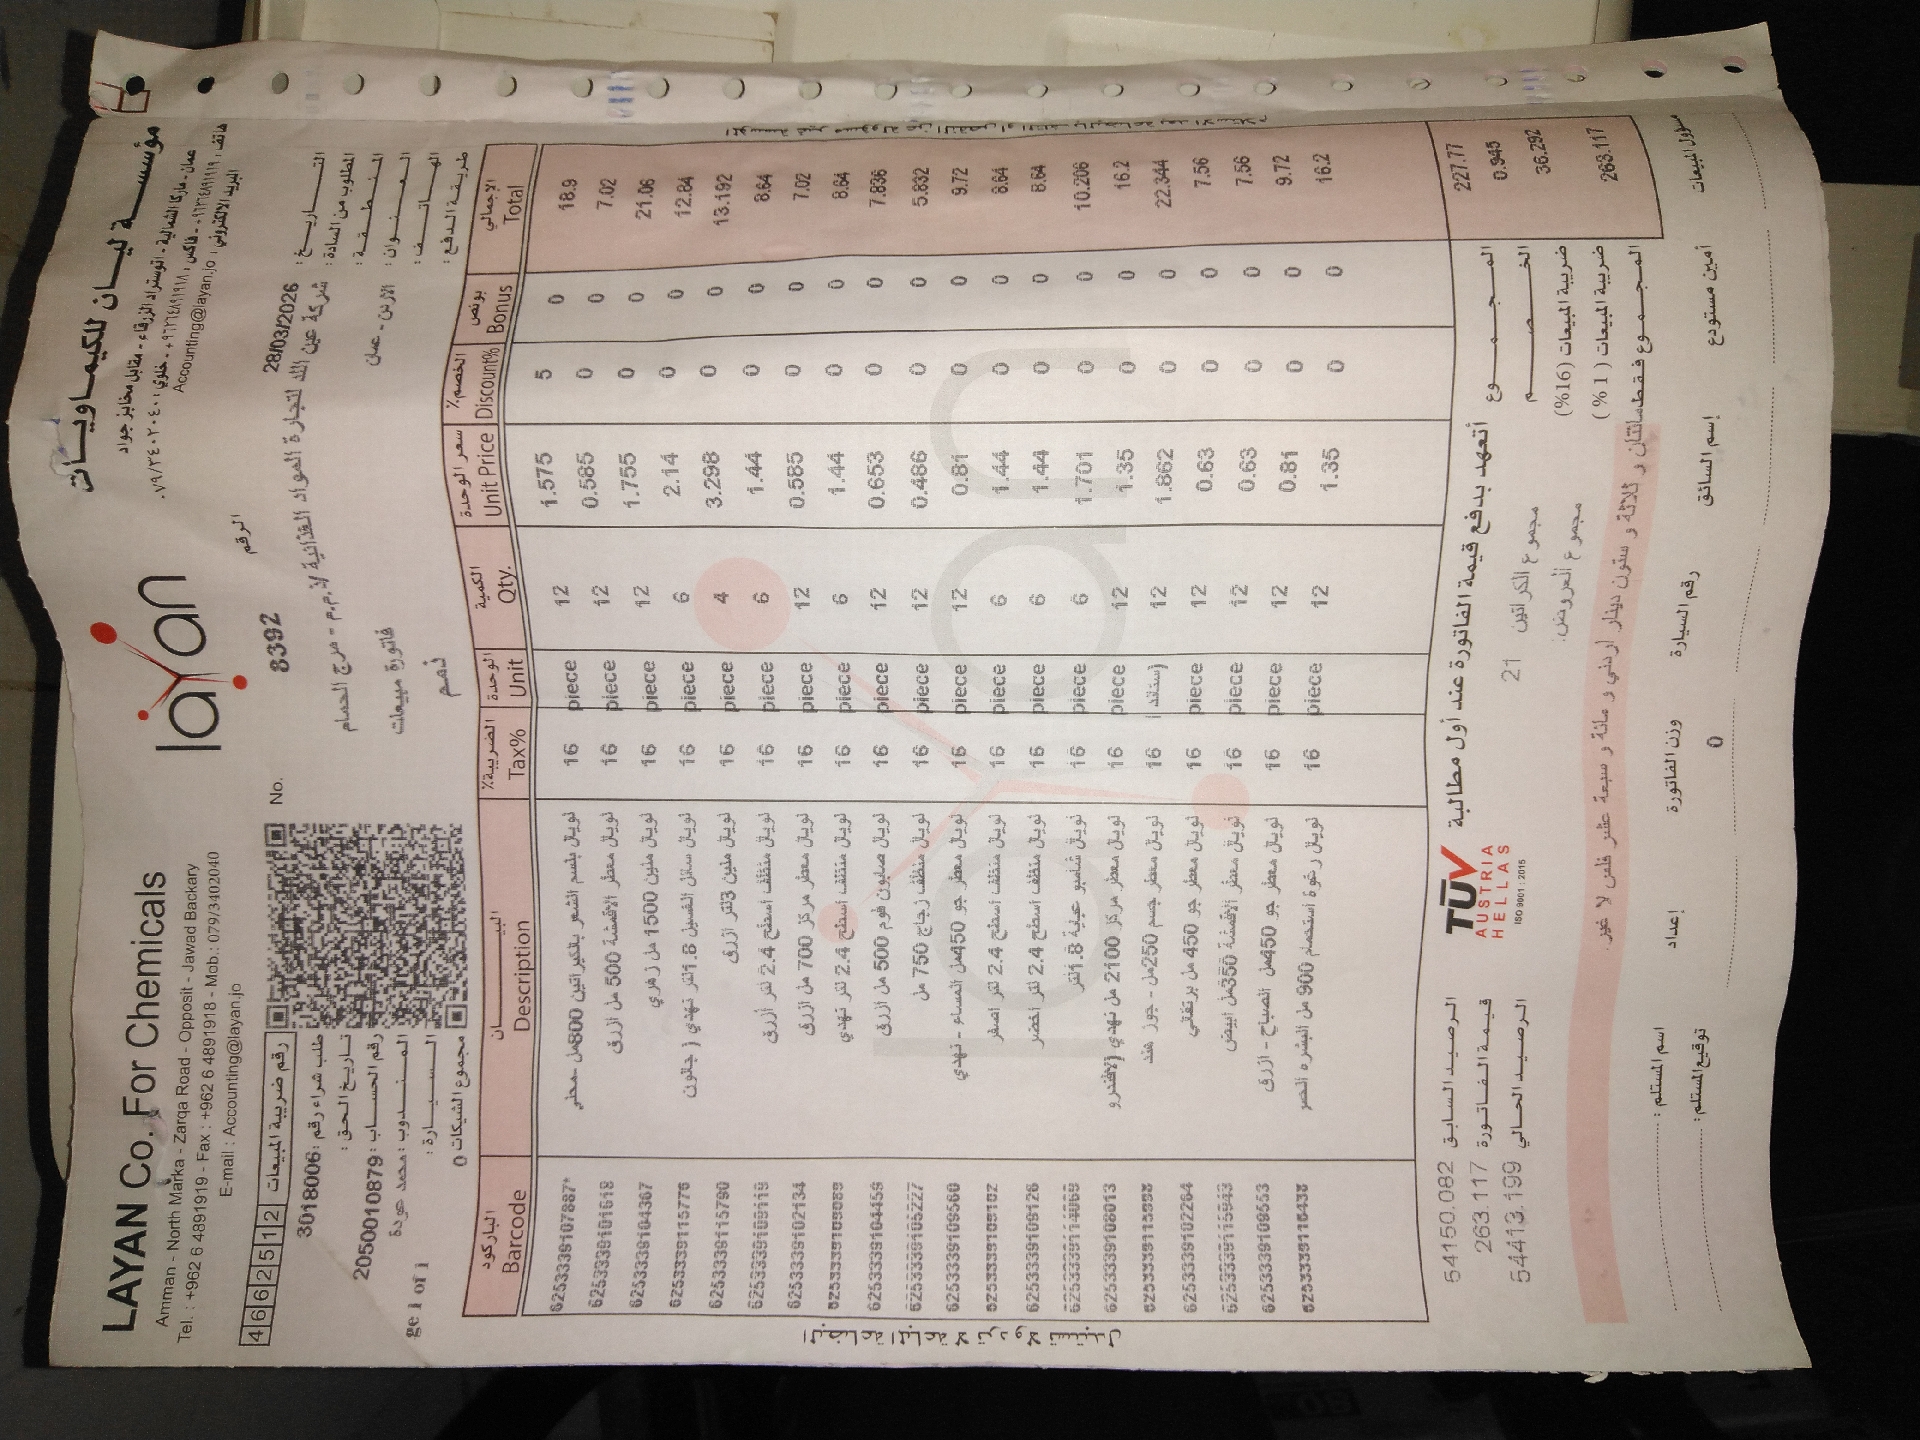 LAYAN Co. For Chemicals
Amman - North Marka - Zarqa Road - Opposit - Jawad Backary
Tel. : +962 6 4891919 - Fax : +962 6 4891918 - Mob.: 079/3402040
E-mail : Accounting@layan.jo
layan
مؤسسة ليان للكيماويات
عمان - ماركا الشمالية - اتوستراد الزرقاء - مقابل مخابز جواد
هاتف : ٩٦٢٦٤٨٩١٩١٩+ - فاكس : ٩٦٢٦٤٨٩١٩١٨+ - خلوي : ٠٧٩/٣٤٠٢٠٤٠
البريد الالكتروني : Accounting@layan.jo
4 6 6 2 5 1 2 رقم ضريبة المبيعات
No. 8392 الرقم
طلب شراء رقم : 3018006
تاريخ الحق :
رقم الحساب : 2050010879
المندوب : محمد عودة
السيارة :
مجموع الشيكات 0
ge 1 of 1
التاريخ : 28/03/2026
المطلوب من السادة : شركة عين اللد لتجارة المواد الغذائية ذ.م.م - مرج الحمام
المنطقة :
العنوان : الاردن - عمان
الهاتف : فاتورة مبيعات
طريقة الدفع : ذمم
الباركود البيان الضريبة% الوحدة الكمية سعر الوحدة الخصم% بونص الإجمالي
Barcode Description Tax% Unit Qty. Unit Price Discount% Bonus Total
6253339107887* لويال بلسم الشعر بالكيراتين 800مل 16 piece 12 1.575 5 0 18.9
6253339101618 لويال معطر الاقمشة 500 مل ازرق 16 piece 12 0.585 0 0 7.02
6253339104367 لويال ملين 1500 مل زهري 16 piece 12 1.755 0 0 21.06
6253339115776 لويال سائل الغسيل 1.8لتر نهدي ( جالون 16 piece 6 2.14 0 0 12.84
6253339115790 لويال ملين 3لتر ازرق 16 piece 4 3.298 0 0 13.192
6253339109119 لويال منظف اسطح 2.4 لتر ازرق 16 piece 6 1.44 0 0 8.64
6253339102134 لويال معطر مركز 700 مل ازرق 16 piece 12 0.585 0 0 7.02
6253339109089 لويال منظف اسطح 2.4 لتر نهدي 16 piece 6 1.44 0 0 8.64
6253339104459 لويال صابون فوم 500 مل ازرق 16 piece 12 0.653 0 0 7.836
6253339105227 لويال منظف زجاج 750 مل 16 piece 12 0.486 0 0 5.832
6253339109560 لويال معطر جو 450مل المساء - نهدي 16 piece 12 0.81 0 0 9.72
6253339109102 لويال منظف اسطح 2.4 لتر اصفر 16 piece 6 1.44 0 0 8.64
6253339109126 لويال منظف اسطح 2.4 لتر اخضر 16 piece 6 1.44 0 0 8.64
6253339114069 لويال شامبو عناية 1.8لتر 16 piece 6 1.701 0 0 10.206
6253339108013 لويال معطر مركز 2100 مل نهدي 16 piece 12 1.35 0 0 16.2
لويال معطر جسم 250مل - جوز هند 16 (ستاند 12 1.862 0 0 22.344
6253339102264 لويال معطر جو 450 مل برتقالي 16 piece 12 0.63 0 0 7.56
6253339115943 لويال معطر الاقمشة 350مل ابيض 16 piece 12 0.63 0 0 7.56
6253339109553 لويال معطر جو 450مل الصباح - ازرق 16 piece 12 0.81 0 0 9.72
6253339116438 لويال رغوة استحمام 900 مل البشره 16 piece 12 1.35 0 0 16.2
الرصيد السابق 54150.082
قيمة الفاتورة 263.117
الرصيد الحالي 54413.199
TÜV
AUSTRIA
HELLAS
ISO 9001 : 2015
أتعهد بدفع قيمة الفاتورة عند أول مطالبة
مجموع الكراتين 21
مجموع العروض:
المجموع 227.77
الخصم 0.945
ضريبة المبيعات (16%) 36.292
ضريبة المبيعات (1%)
المجموع 263.117
فقط مائتان و ثلاثة و ستون دينار اردني و مائة و سبعة عشر فلس لا غير.
اسم المستلم :
توقيع المستلم :
إعداد
وزن الفاتورة
0
رقم السيارة
إسم السائق
أمين مستودع
مسؤول المبيعات